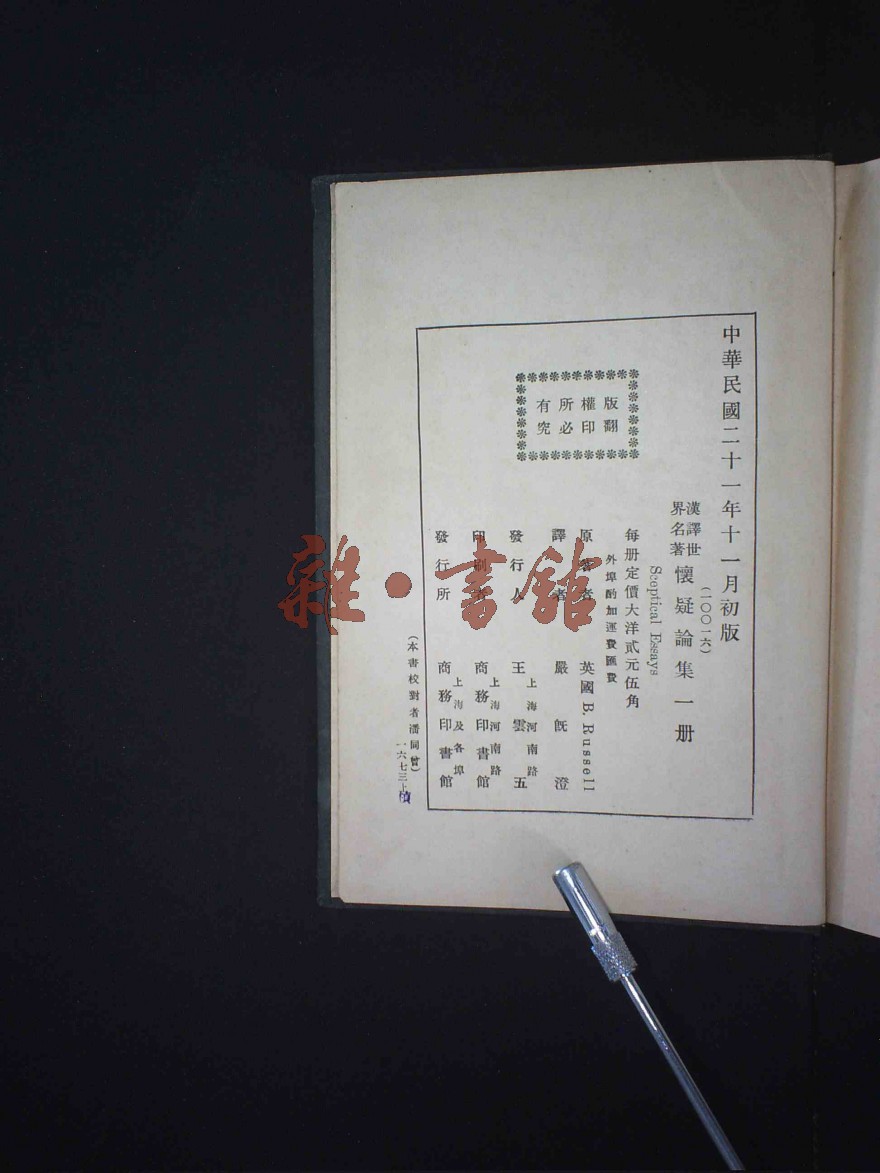 中華民國二十一年十一月初版
(一〇〇一六)
漢譯世界名著 懷疑論集 一册
Sceptical Essays
每册定價大洋貳元伍角
外埠酌加運費匯費
原著者 英國 B. Russell
譯者 嚴旣澄
發行人 王雲五
上海河南路
印刷者 商務印書館
上海河南路
發行所 商務印書館
上海及各埠
版權所有
翻印必究
(本書校對者潘同曾)
一六七三上
雜·書館